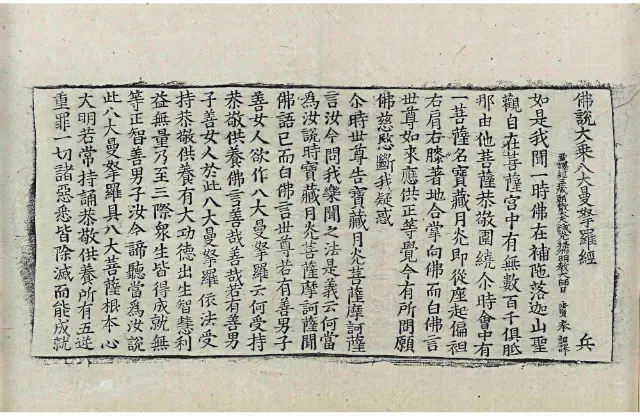 佛說大乘八大曼拏羅經 兵
譯經三藏朝散大夫試光祿卿明教大師臣 賢奉 詔譯
如是我聞一時佛在補陁落迦山聖
觀自在菩薩宮中有無數百千俱胝
那由他菩薩恭敬圍繞尒時會中有
一菩薩名寶藏月光即從座起偏袒
右肩右膝著地合掌向佛而白佛言
世尊如來應供正等覺今有所問願
佛慈愍斷我疑惑
尒時世尊告寶藏月光菩薩摩訶薩
言汝今問我樂聞之法是義云何當
為汝說時寶藏月光菩薩摩訶薩聞
佛語已而白佛言世尊若有善男子
善女人欲作八大曼拏羅云何受持
恭敬供養佛言善哉善哉若有善男
子善女人於此八大曼拏羅依法受
持恭敬供養有大功德出生智慧利
益無量乃至三際衆生皆得成就無
等正智善男子汝今諦聽當為汝說
此八大曼拏羅具八大菩薩根本心
大明若常持誦恭敬供養所有五逆
重罪一切諸惡悉皆除滅而能成就